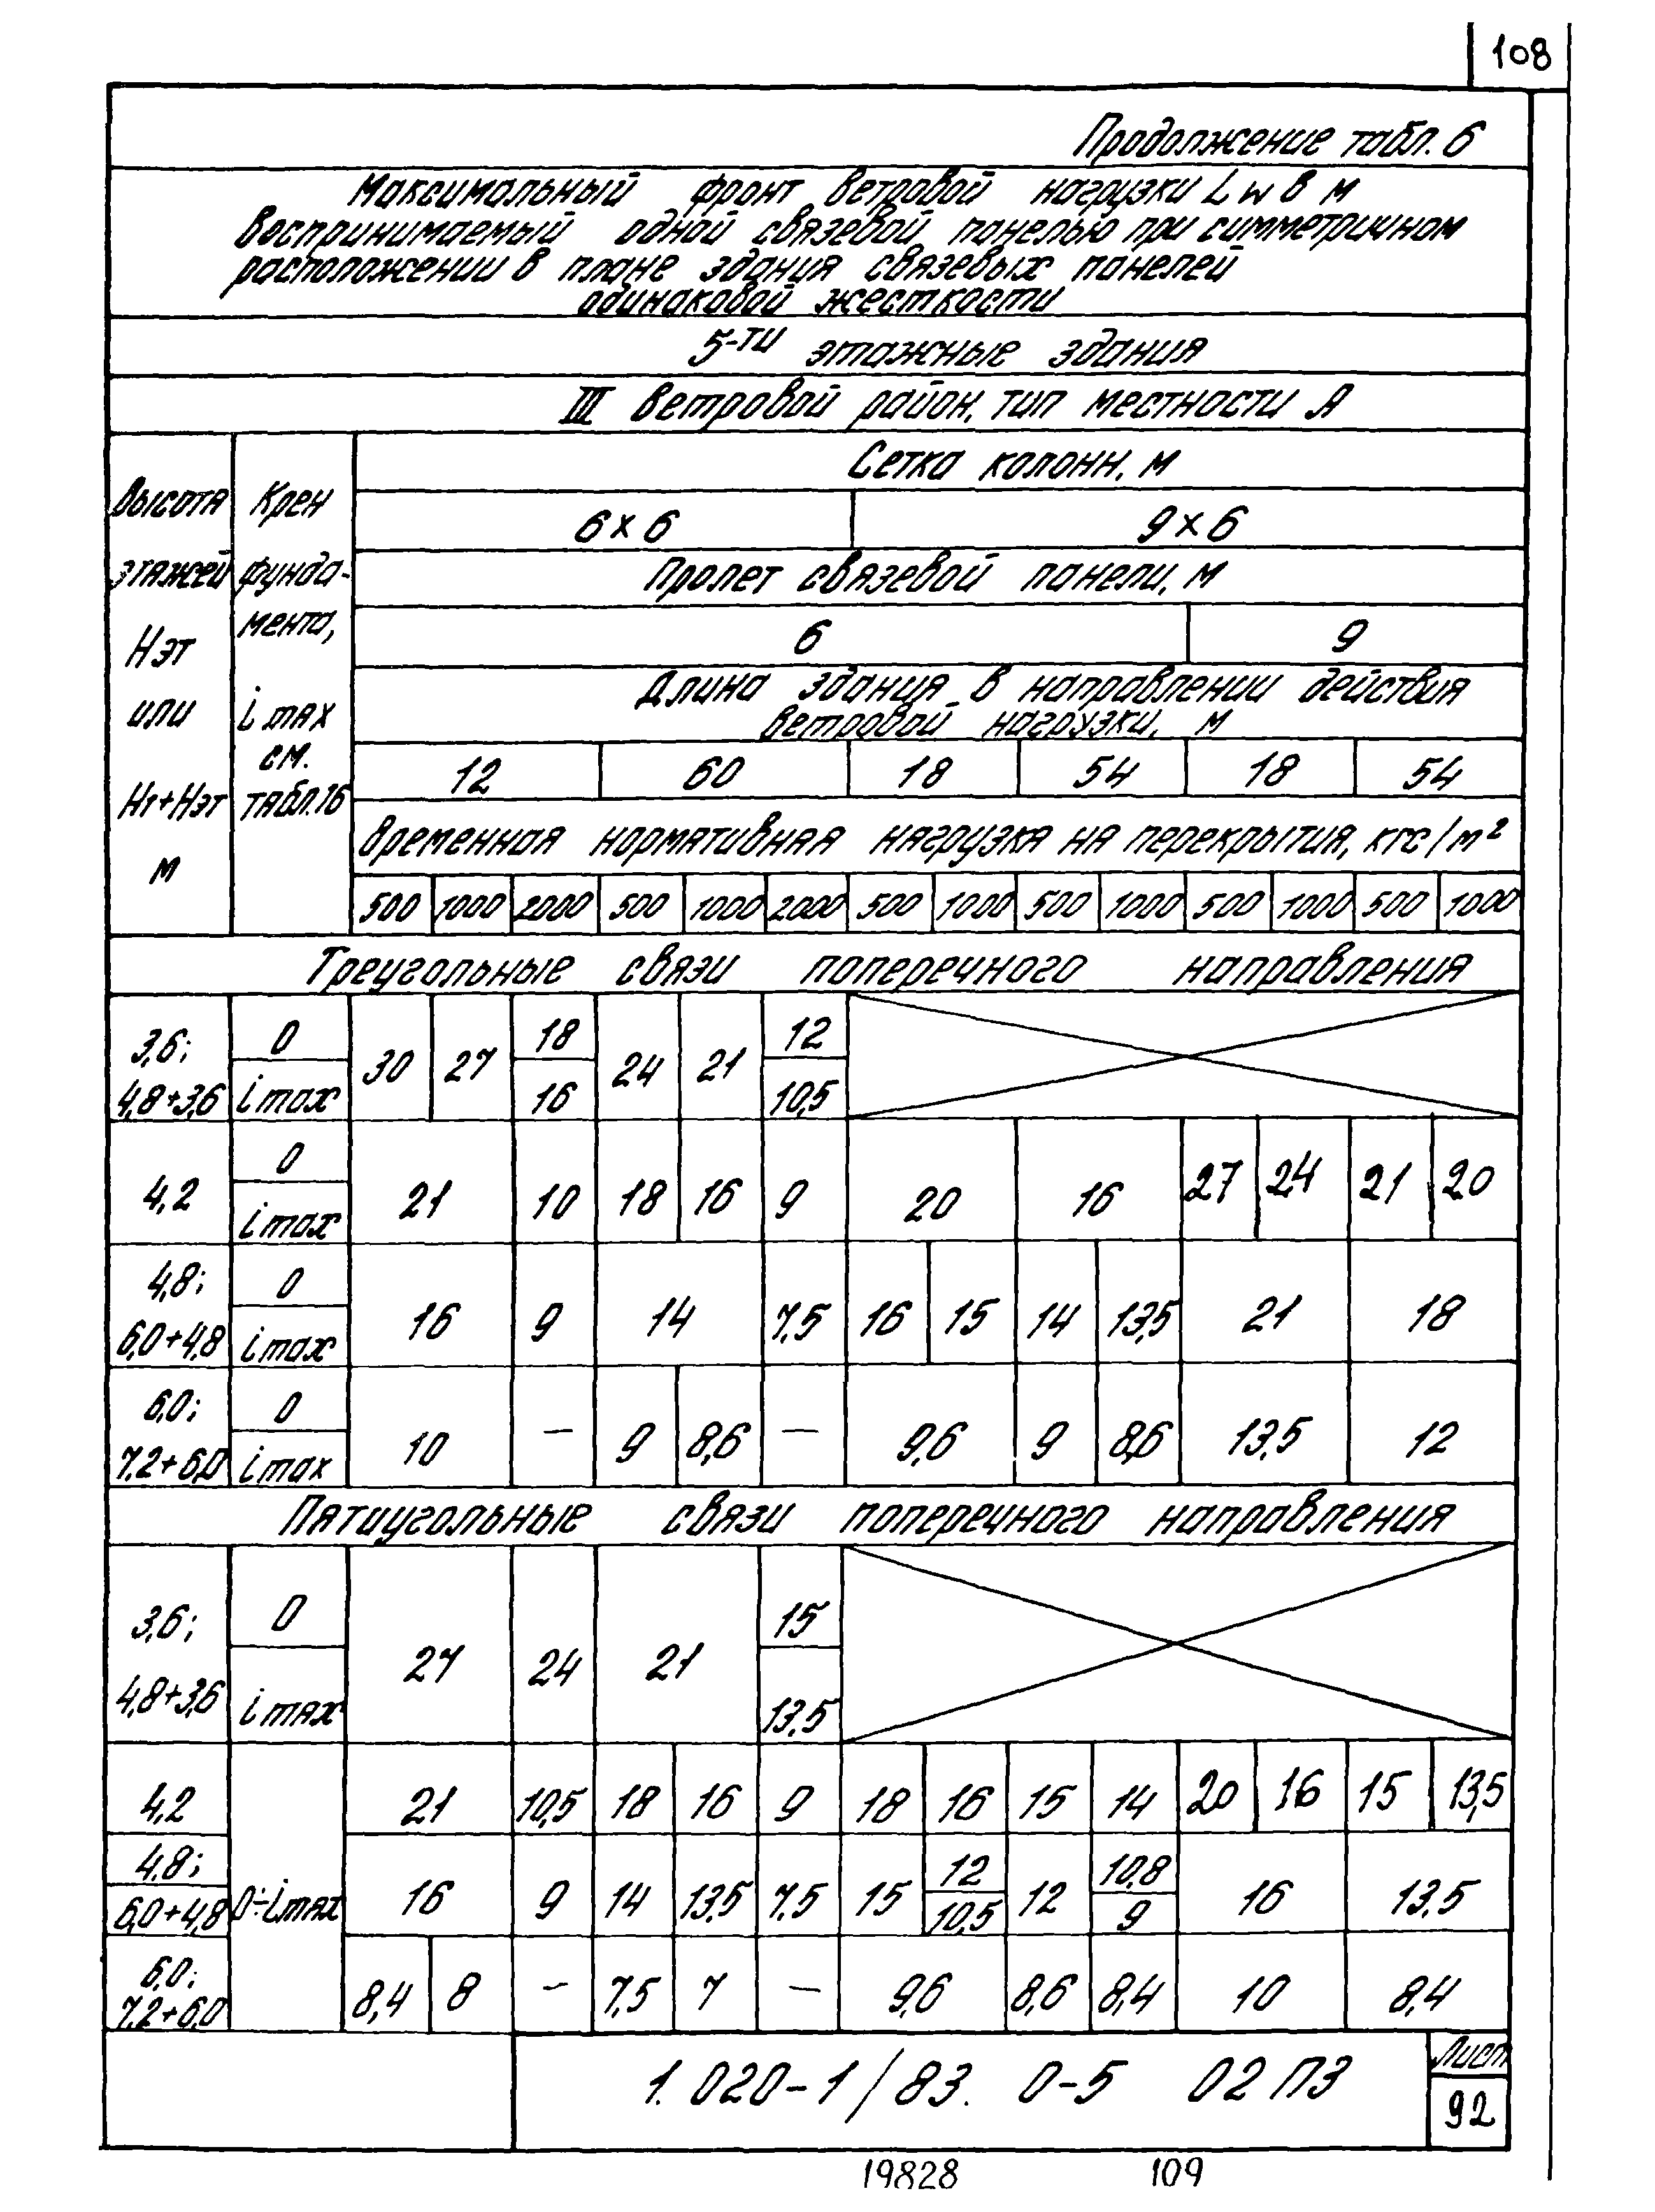 108
Продолжение табл. 6
Максимальный фронт ветровой нагрузки Lw в м
воспринимаемый одной связевой панелью при симметричном
расположении в плане здания связевых панелей
одинаковой жесткости
5-ти этажные здания
III ветровой район, тип местности А
Высота этажей Нэт или Н1+Нэт м
Крен фунда-мента, i max см. табл. 16
Сетка колонн, м
6 х 6 9 х 6
Пролет связевой панели, м
6 9
Длина здания в направлении действия
ветровой нагрузки, м
12 60 18 54 18 54
Временная нормативная нагрузка на перекрытия, кгс/м²
500 1000 2000 500 1000 2000 500 1000 500 1000 500 1000 500 1000
Треугольные связи поперечного направления
3,6; 0 18 12
30 27 24 21
4,8+3,6 i max 16 10,5
0
4,2 21 10 18 16 9 20 16 27 24 21 20
i max
4,8; 0
6,0+4,8 i max 16 9 14 7,5 16 15 14 13,5 21 18
6,0; 0
7,2+6,0 i max 10 — 9 8,6 — 9,6 9 8,6 13,5 12
Пятиугольные связи поперечного направления
3,6; 0 15
27 24 21
4,8+3,6 i max 13,5
4,2 21 10,5 18 16 9 18 16 15 14 20 16 15 13,5
4,8; 12 10,8
6,0+4,8 0÷i max 16 9 14 13,5 7,5 15 10,5 12 9 16 13,5
6,0;
7,2+6,0 8,4 8 — 7,5 7 — 9,6 8,6 8,4 10 8,4
1.020-1/83. 0-5 02 ПЗ
Лист
92
19828 109